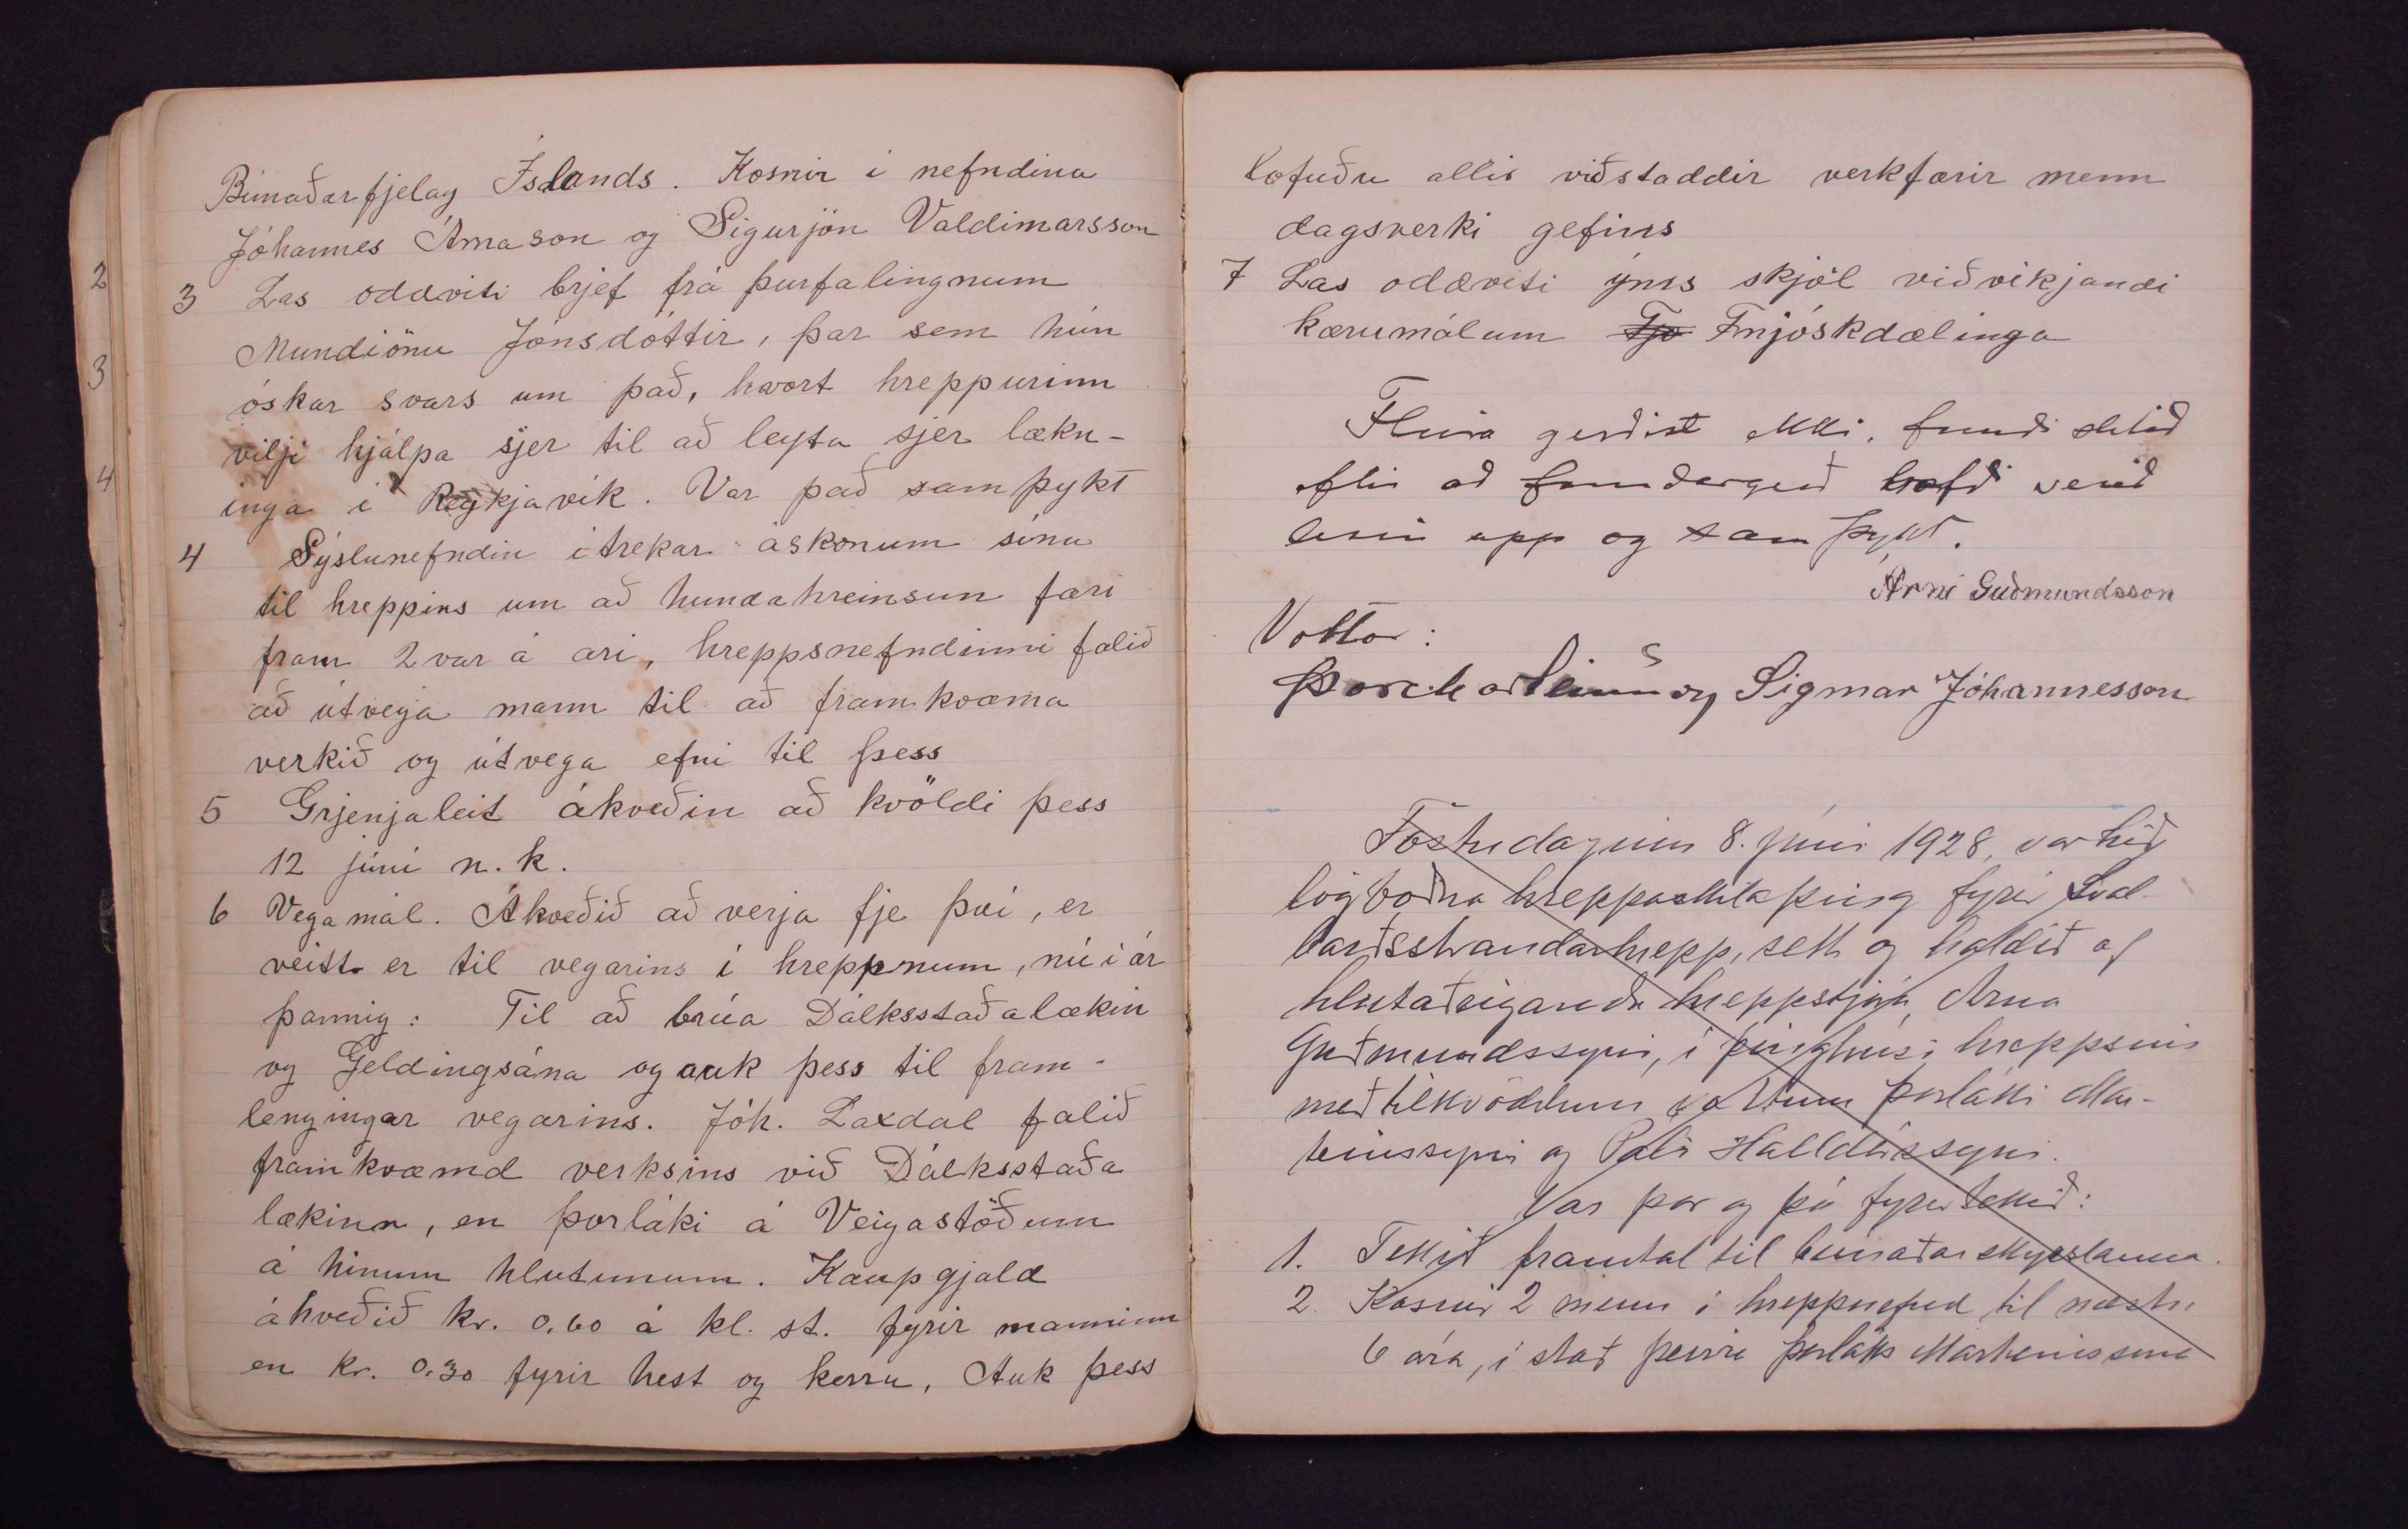 Búnaðarfjelag Íslands. Kosnir í nefndina
Jóhannes Árnason og Sigurjón Valdimarsson
3 Las oddviti brjef frá þurfalingnum
Mundíönu Jónsdóttir, þar sem hún
óskar svars um það, hvort hreppurinn
vilji hjálpa sjer til að leyta sjer lækn-
inga í Reykjavík. Var það samþykt
4 Sýslunefndin ítrekar áskonum sínu
til hreppins um að hundahreinsun fari
fram 2var á ári, hreppsnefndinni falið
að útvega mann til að framkvæma
verkið og útvega efni til þess
5 Grjenjaleit ákveðin að kvöldi þess
12 júní n.k.
6 Vegamál. Ákveðið að verja fje því, er
veitt er til vegarins í hreppnum, nú í ár
þannig: Til að brúa Dálksstaðalækin
og Geldingsána og auk þess til fram-
lengingar vegarins. Jóh. Laxdal falið
framkvæmd verksins við Dálksstaða
lækinn, en Þorláki á Veigastöðum
á hinum hlutunum. Kaupgjald
ákveðið kr. 0.60 á kl. st. fyrir manninn
en kr. 0.30 fyrir hest og kerru, Auk þess
2
3
4
lofuðu allir viðstaddir verkfærir menn
dagsverki gefins
7 Las oddviti ýms skjöl viðvíkjandi
kærumálum Fjo Fnjóskdælinga
Fleira gerðist ekki, fundi slitið
eftir að fundargerð hafði verið
lesin upp og samþykt.
Árni Guðmundsson
Vottar:
Sigmar Jóhannesson
Föstudaginn 8. júní 1928, var hið
lögboðna hreppaskilaþing fyrir Sval-
barðsstrandarhrepp, sett og haldið af
hlutaðeigandi hreppstjóra, Árna
Guðmundssyni, í þinghúsi hreppsins
með tilkvöddum vottum Þorláki Mar-
teinssyni og Páli Halldórssyni.
Var þar og þá fyrirtekið:
1. Tekið framtal til búnaðarskýrslanna.
2. Kosnir 2 menn í hreppsnefnd til næstu
6 ára, í stað þeirra Þorláks Marteinssonar